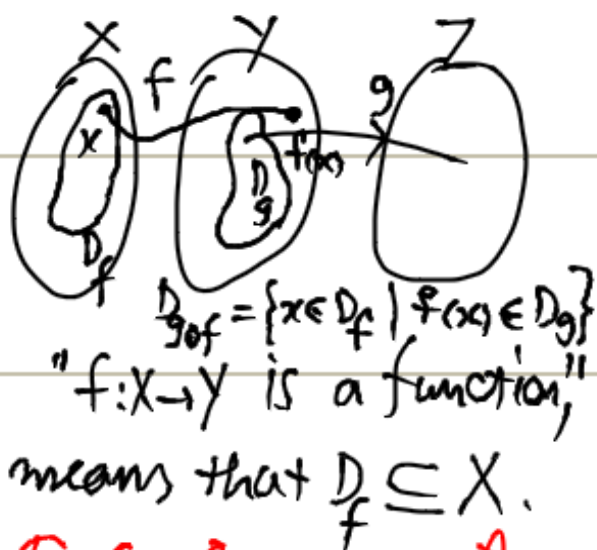 X Y Z
f g
x f(x)
D_f D_g
D_{g∘f} = {x ∈ D_f | f(x) ∈ D_g}
"f: X → Y is a function,"
means that D_f ⊆ X.